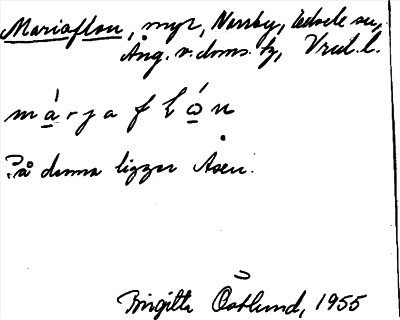 Mariaflon, myr, Nässby, Edsele sn,
Ång. v. doms. h., Vrml. l.
márjaflón
På denna ligger Åsen.
Birgitta Östlund, 1955